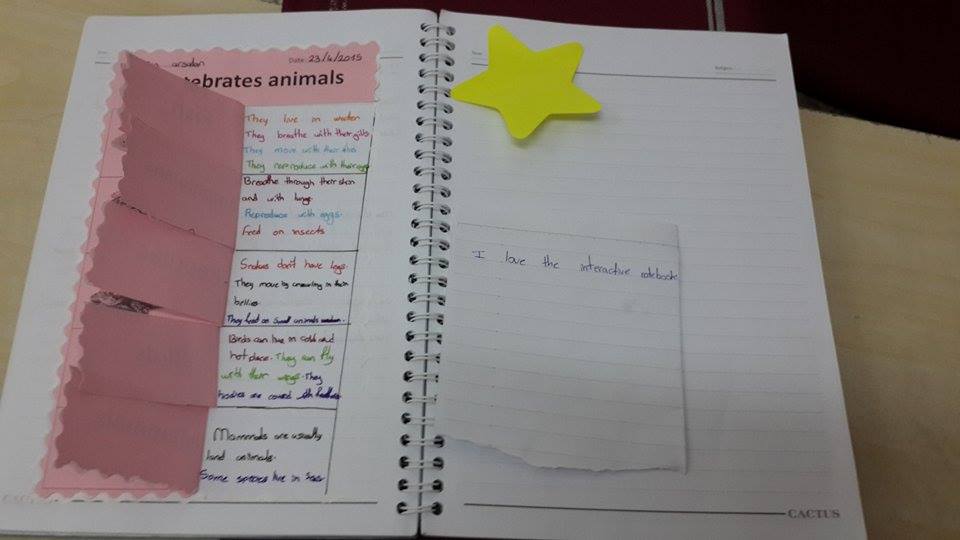 arsalan Date: 23/4/2015
tebrates animals
They live in water
They breathe with their gills
They move with their fins
They reproduce with their eggs
Breathe through their skin
and with lungs
Reproduce with eggs.
Feed on insects
Snakes don't have legs.
They move by crawling in their
bellies.
They feed on small animals
Birds can live in cold and
hot place. They can fly
with their wings. They
bodies are covered
Mammals are usually
land animals.
Some species live in seas
I love the interactive notebook
CACTUS